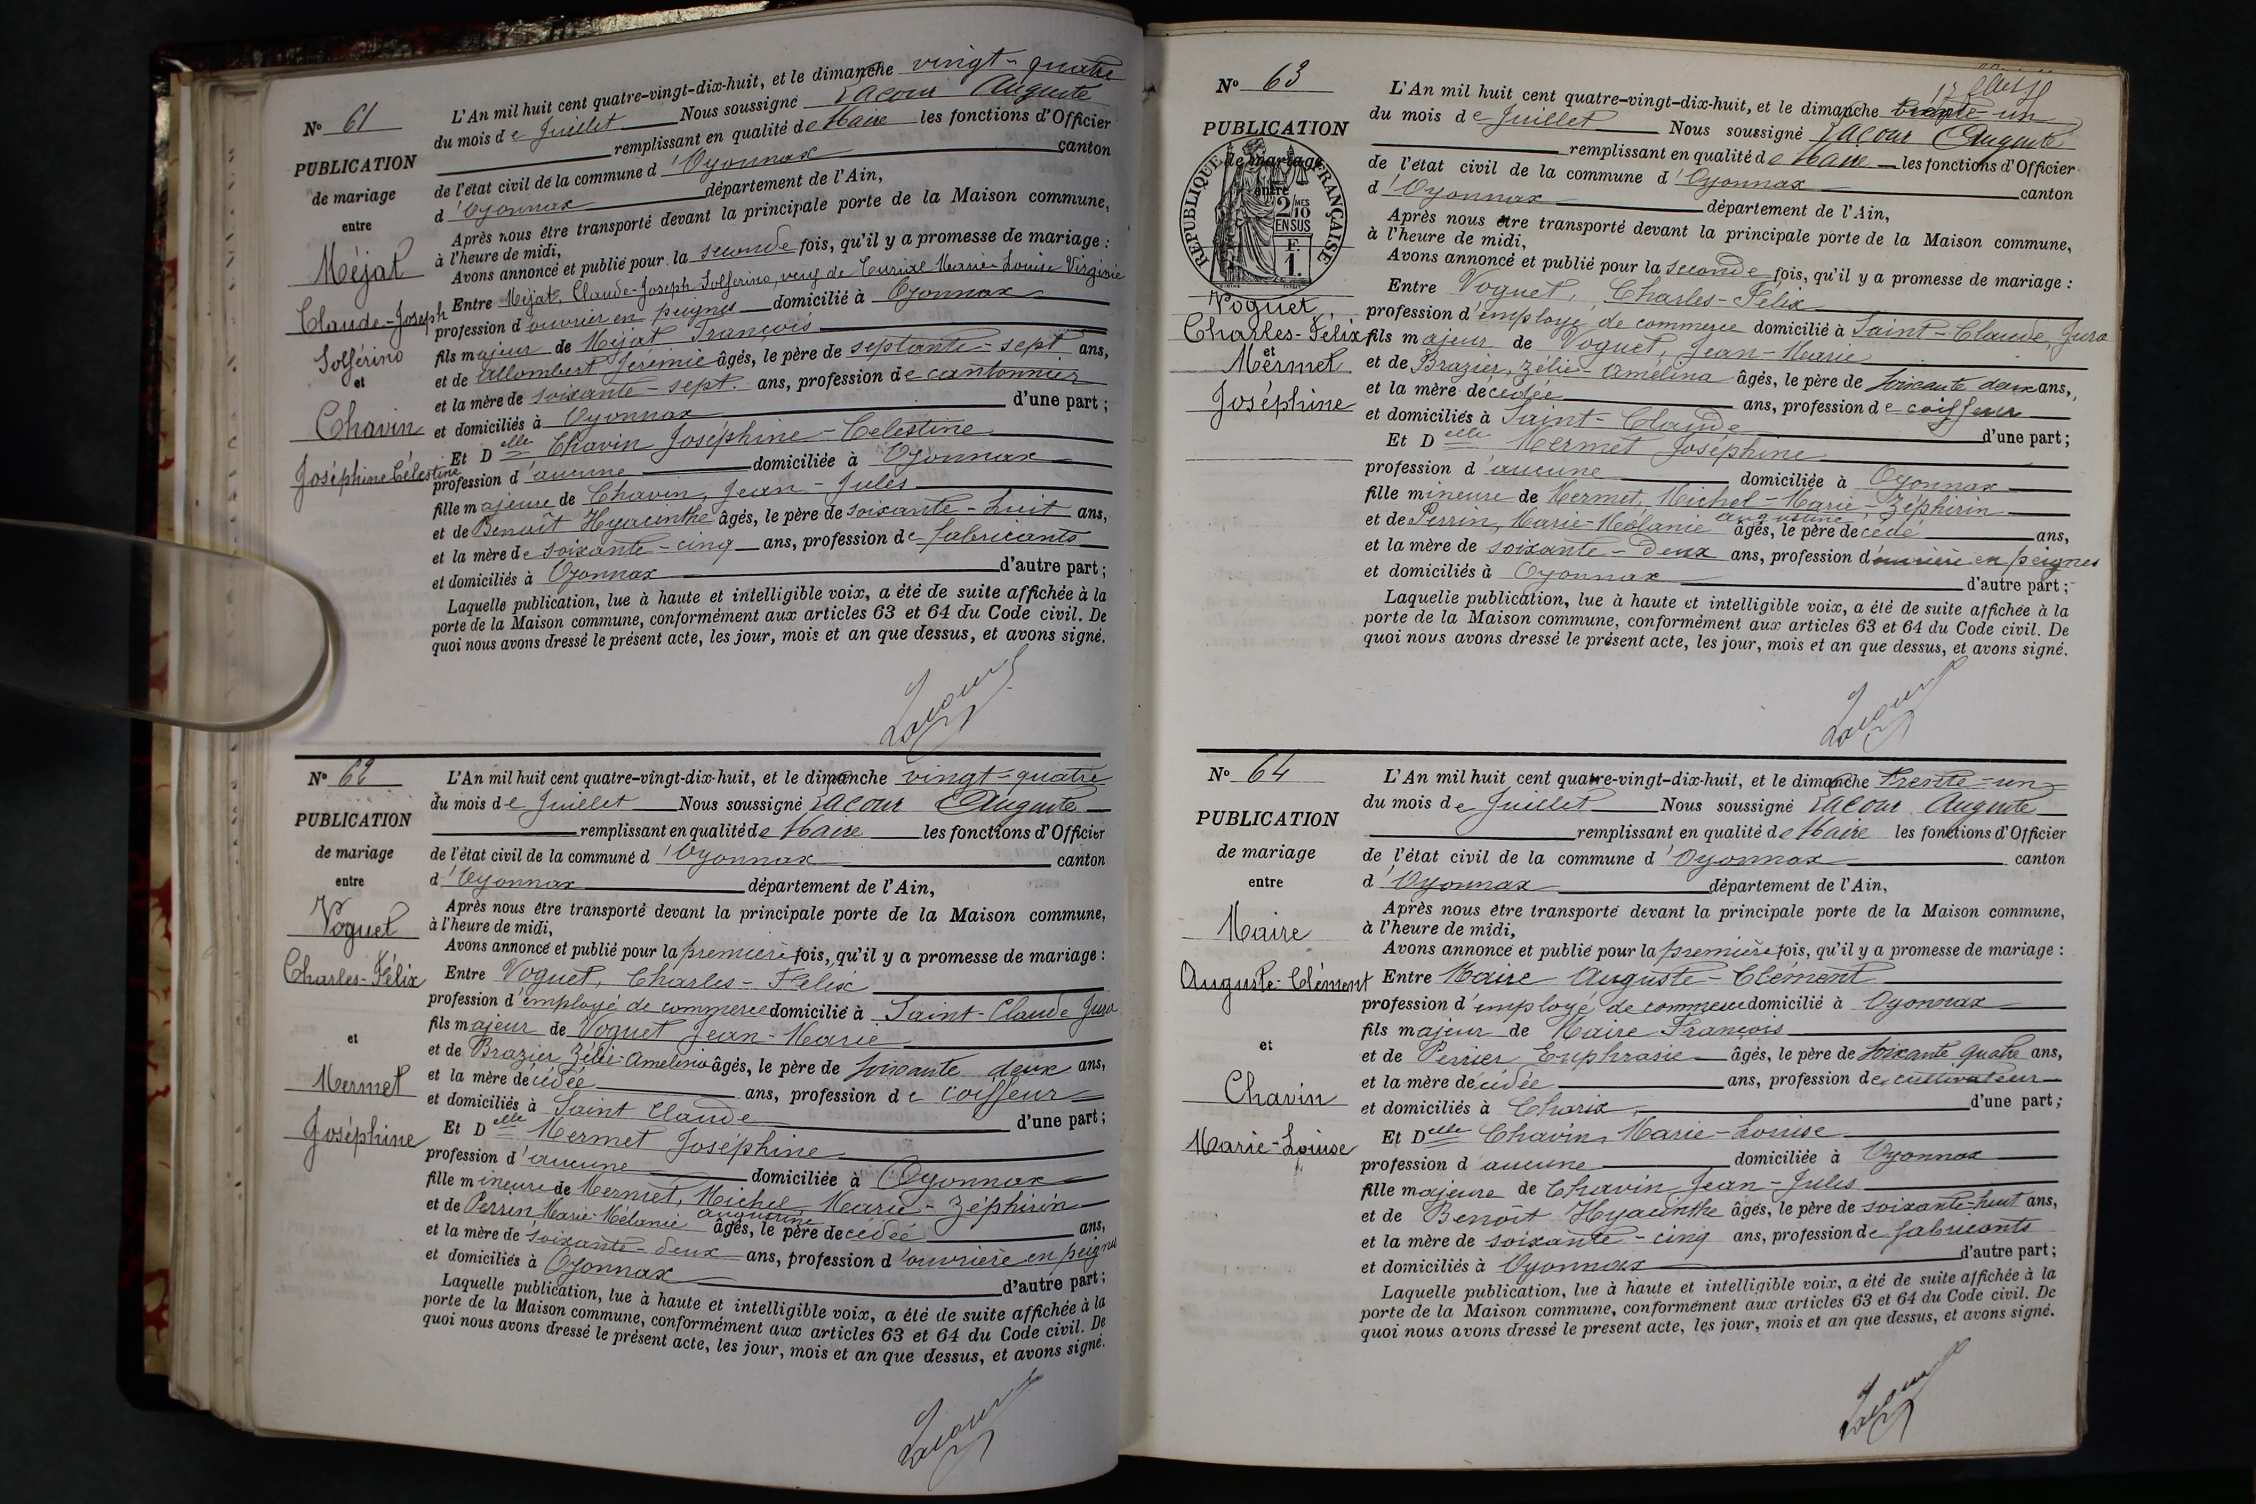 N° 61
PUBLICATION
de mariage
entre
Méjat
Claude-Joseph
Solférino
et
Chavin
Joséphine Célestine
L'An mil huit cent quatre-vingt-dix-huit, et le dimanche vingt-quatre
du mois de Juillet Nous soussigné Lacour Auguste
remplissant en qualité de Maire les fonctions d'Officier
de l'état civil de la commune d'Oyonnax canton
d'Oyonnax département de l'Ain,
Après nous être transporté devant la principale porte de la Maison commune,
à l'heure de midi,
Avons annoncé et publié pour la seconde fois, qu'il y a promesse de mariage :
Entre Méjat, Claude-Joseph Solferino, veuf de Marie-Louise Virginie
profession d'ouvrier en peignes domicilié à Oyonnax
fils majeur de Méjat François
et de Allombert Jérémie âgés, le père de septante-sept ans,
et la mère de soixante-sept ans, profession de cantonnier
et domiciliés à Oyonnax d'une part ;
Et Delle Chavin Joséphine-Célestine
profession d'aucune domiciliée à Oyonnax
fille majeure de Chavin, Jean-Jules
et de Benoît Hyacinthe âgés, le père de soixante-huit ans,
et la mère de soixante-cinq ans, profession de fabricants
et domiciliés à Oyonnax d'autre part ;
Laquelle publication, lue à haute et intelligible voix, a été de suite affichée à la
porte de la Maison commune, conformément aux articles 63 et 64 du Code civil. De
quoi nous avons dressé le présent acte, les jour, mois et an que dessus, et avons signé.
Lacour
N° 62
PUBLICATION
de mariage
entre
Voguet
Charles-Félix
et
Mermet
Joséphine
L'An mil huit cent quatre-vingt-dix-huit, et le dimanche vingt-quatre
du mois de Juillet Nous soussigné Lacour Auguste
remplissant en qualité de Maire les fonctions d'Officier
de l'état civil de la commune d'Oyonnax canton
d'Oyonnax département de l'Ain,
Après nous être transporté devant la principale porte de la Maison commune,
à l'heure de midi,
Avons annoncé et publié pour la première fois, qu'il y a promesse de mariage :
Entre Voguet, Charles-Félix
profession d'employé de commerce domicilié à Saint-Claude Jura
fils majeur de Voguet Jean-Marie
et de Brazier Zélie-Amelina âgés, le père de soixante deux ans,
et la mère décédée ans, profession de coiffeur
et domiciliés à Saint Claude d'une part ;
Et Delle Mermet Joséphine
profession d'aucune domiciliée à Oyonnax
fille mineure de Mermet, Michel-Marie-Zéphirin
augustine
et de Perrin Marie-Mélanie âgés, le père décédé ans,
et la mère de soixante-deux ans, profession d'ouvrière en peignes
et domiciliés à Oyonnax d'autre part ;
Laquelle publication, lue à haute et intelligible voix, a été de suite affichée à la
porte de la Maison commune, conformément aux articles 63 et 64 du Code civil. De
quoi nous avons dressé le présent acte, les jour, mois et an que dessus, et avons signé.
Lacour
N° 63
PUBLICATION
de mariage
entre
RÉPUBLIQUE FRANÇAISE
2/10 MES
EN SUS
F.
1.
Voguet
Charles-Félix
et
Mermet
Joséphine
L'An mil huit cent quatre-vingt-dix-huit, et le dimanche trente-un
du mois de Juillet Nous soussigné Lacour Auguste
remplissant en qualité de Maire les fonctions d'Officier
de l'état civil de la commune d'Oyonnax
d'Oyonnax canton
département de l'Ain,
Après nous être transporté devant la principale porte de la Maison commune,
à l'heure de midi,
Avons annoncé et publié pour la seconde fois, qu'il y a promesse de mariage :
Entre Voguet, Charles-Félix
profession d'employé de commerce domicilié à Saint-Claude, Jura
fils majeur de Voguet, Jean-Marie
et de Brazier, Zélie-Amelina âgés, le père de soixante deux ans,
et la mère décédée ans, profession de coiffeur
et domiciliés à Saint-Claude d'une part ;
Et Delle Mermet Joséphine
profession d'aucune domiciliée à Oyonnax
fille mineure de Mermet, Michel-Marie-Zéphirin
augustine
et de Perrin, Marie-Mélanie âgés, le père décédé ans,
et la mère de soixante-deux ans, profession d'ouvrière en peignes
et domiciliés à Oyonnax d'autre part ;
Laquelle publication, lue à haute et intelligible voix, a été de suite affichée à la
porte de la Maison commune, conformément aux articles 63 et 64 du Code civil. De
quoi nous avons dressé le présent acte, les jour, mois et an que dessus, et avons signé.
Lacour
N° 64
PUBLICATION
de mariage
entre
Maire
Auguste-Clément
et
Chavin
Marie-Louise
L'An mil huit cent quatre-vingt-dix-huit, et le dimanche trente-un
du mois de Juillet Nous soussigné Lacour Auguste
remplissant en qualité de Maire les fonctions d'Officier
de l'état civil de la commune d'Oyonnax canton
d'Oyonnax département de l'Ain,
Après nous être transporté devant la principale porte de la Maison commune,
à l'heure de midi,
Avons annoncé et publié pour la première fois, qu'il y a promesse de mariage :
Entre Maire Auguste-Clément
profession d'employé de commerce domicilié à Oyonnax
fils majeur de Maire François
et de Perrier Euphrasie âgés, le père de soixante quatre ans,
et la mère décédée ans, profession de cultivateur
et domiciliés à Charix, d'une part ;
Et Delle Chavin, Marie-Louise
profession d'aucune domiciliée à Oyonnax
fille majeure de Chavin Jean-Jules
et de Benoît Hyacinthe âgés, le père de soixante-huit ans,
et la mère de soixante-cinq ans, profession de fabricants
et domiciliés à Oyonnax d'autre part ;
Laquelle publication, lue à haute et intelligible voix, a été de suite affichée à la
porte de la Maison commune, conformément aux articles 63 et 64 du Code civil. De
quoi nous avons dressé le présent acte, les jour, mois et an que dessus, et avons signé.
Lacour